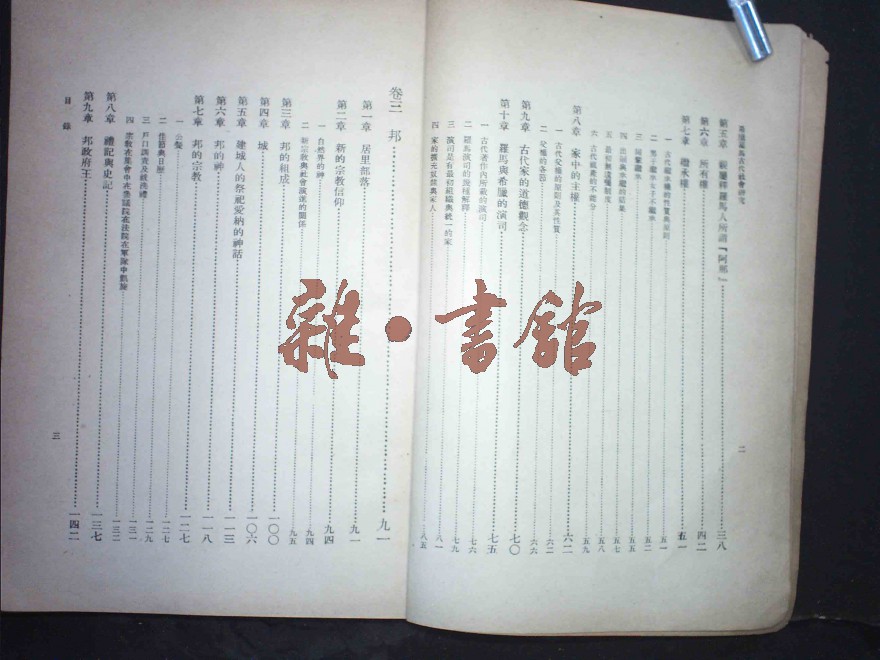 希臘羅馬古代社會研究
第五章 親屬釋羅馬人所謂「阿那」 三八
第六章 所有權 四二
第七章 繼承權 五一
一 古代繼承權的性質與原則 五一
二 男子繼承女子不繼承 五二
三 同輩繼承 五五
四 出嗣與承繼的結果 五五
五 最初無遺囑制度 五八
六 古代祖產的不能分 五九
第八章 家中的主權 六二
一 古代父權的原則及其性質 六二
二 父權的各條 六六
第九章 古代家的道德觀念 七〇
第十章 羅馬與希臘的演司 七五
一 古代著作內所載的演司
二 羅馬演司的幾種解釋 七六
三 演司是有最初組織與統一的家 七九
四 家的擴充 八一
二
卷三 邦 九一
第一章 居里部落 九一
第二章 新的宗教信仰 九四
一 自然界的神 九四
二 新宗教與社會演進的關係 九五
第三章 邦的組成 一〇〇
第四章 城 一〇六
第五章 建城人的祭祀愛納的神話 一一三
第六章 邦的神 一一八
第七章 邦的宗教 一二七
一 公餐 一二七
二 佳節與日曆 一二七
三 戶口調查及祓洗禮 一二九
四 宗教在集會中在參議院在法院在軍隊中凱旋 一三一
第八章 禮記與史記 一三七
第九章 邦政府王 一四二
目錄
三
雜・書館